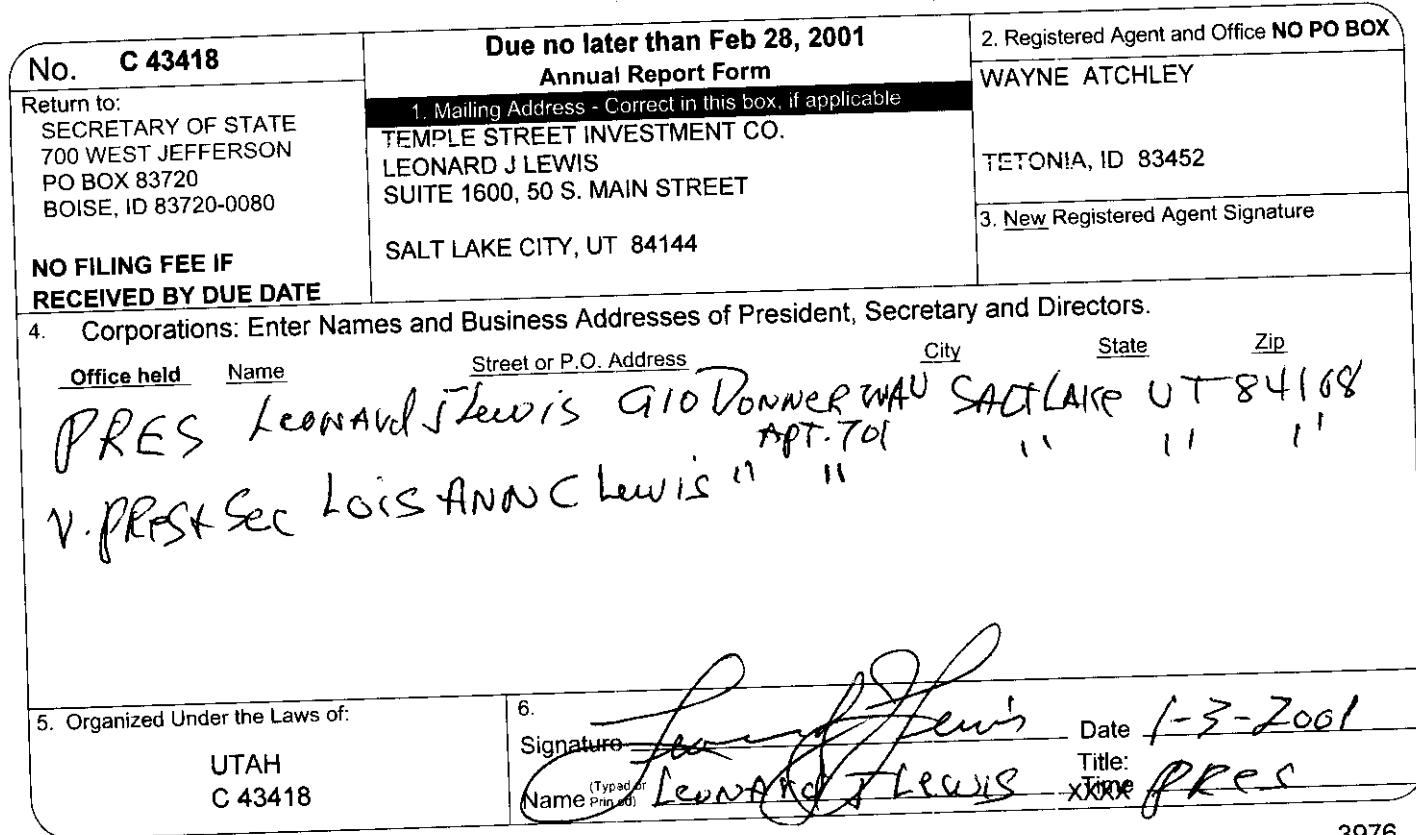 No. C 43418
Return to:
SECRETARY OF STATE
700 WEST JEFFERSON
PO BOX 83720
BOISE, ID 83720-0080
NO FILING FEE IF
RECEIVED BY DUE DATE
Due no later than Feb 28, 2001
Annual Report Form
1. Mailing Address - Correct in this box, if applicable
TEMPLE STREET INVESTMENT CO.
LEONARD J LEWIS
SUITE 1600, 50 S. MAIN STREET
SALT LAKE CITY, UT 84144
2. Registered Agent and Office NO PO BOX
WAYNE ATCHLEY
TETONIA, ID 83452
3. New Registered Agent Signature
4. Corporations: Enter Names and Business Addresses of President, Secretary and Directors.
Office held Name Street or P.O. Address City State Zip
PRES Leonard J Lewis 910 DONNER WAY SALT LAKE UT 84108
APT. 701 " " "
V. PRES & Sec LOIS ANN C Lewis " "
5. Organized Under the Laws of:
UTAH
C 43418
6.
Signature Leonard J Lewis Date 1-3-2001
Title:
Name (Typed or Printed) LEONARD J LEWIS PRES
3976